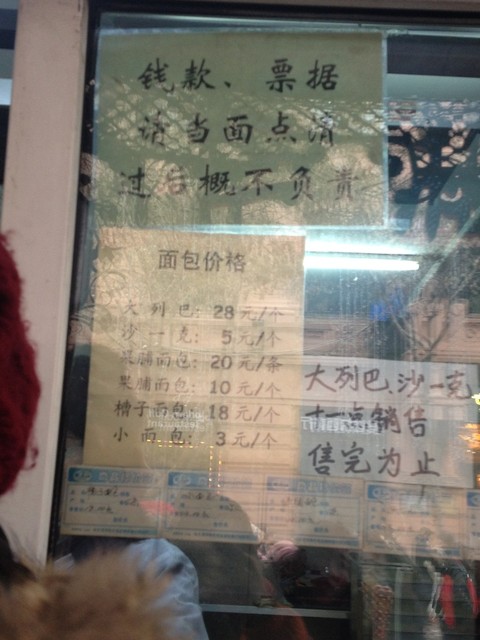 钱款、票据
请当面点清
过后概不负责
面包价格
大列巴: 28元/个
沙一克: 5元/个
果脯面包: 20元/条
果脯面包: 10元/个
槽子面包: 18元/个
小面包: 3元/个
大列巴、沙一克
十一点销售
售完为止